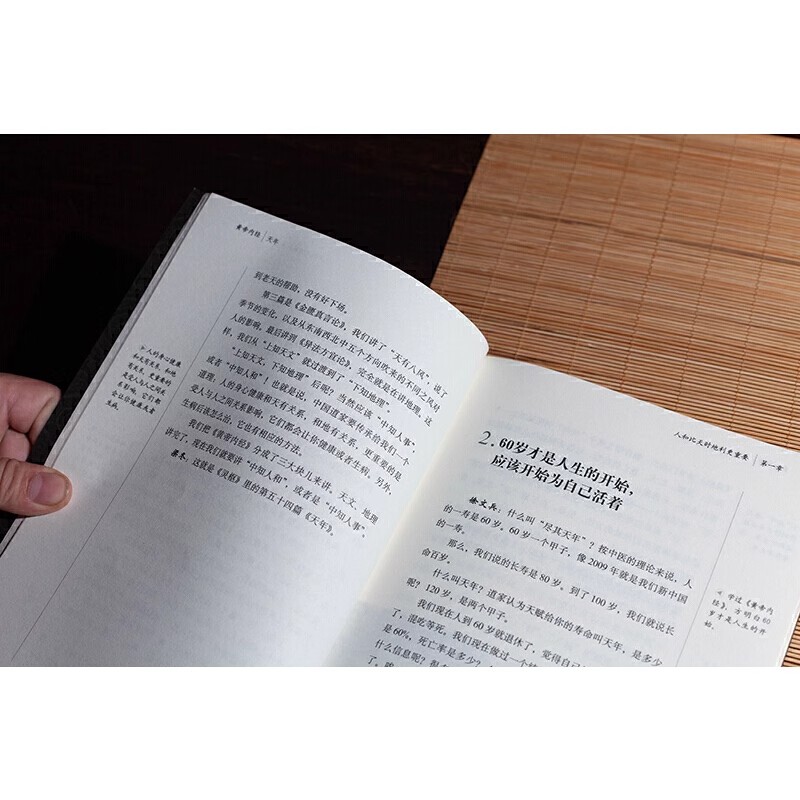 黄帝内经 | 天年
到老天的帮助，没有好下场。
第三篇是《金匮真言论》，我们讲了“天有八风”，说了
季节的变化，以及从东南西北中五个方向吹来的不同之风对
人的影响，最后讲到《异法方宜论》，完全就是在讲地理。这
样，我们从“上知天文”就过渡到了“下知地理”。
“上知天文，下知地理”后呢？当然应该“中知人事”，
或者“中知人和”！也就是说，中国道家要传承给我们一个
道理，人的身心健康和天有关系，和地有关系，更重要的是
受人与人之间关系影响，它们都会让你健康或者生病。另外，
生病后该怎么治，它也有相应的方法。
我们把《黄帝内经》分成了三大块儿来讲。天文、地理
讲完了，现在我们就要讲“中知人和”，或者是“中知人事”。
梁冬：这就是《灵枢》里的第五十四篇《天年》。
人的身心健康
和天有关系，和地
有关系，更重要的
是受人与人之间关
系影响，它们都
会让你健康或者
生病。
人和比天时地利更重要 | 第一章
2. 60岁才是人生的开始，
应该开始为自己活着
徐文兵：什么叫“尽其天年”？按中医的理论来说，人
的一寿是 60 岁。60 岁一个甲子，像 2009 年就是我们新中国
的一寿。
那么，我们说的长寿是 80 岁，到了 100 岁，我们就说长
命百岁。
什么叫天年？道家认为天赋给你的寿命叫天年，是多少
呢？120 岁，是两个甲子。
我们现在人到 60 岁就退休了，觉得自己
了，混吃等死，我们现在做过一个
是 60%，死亡率是多少？
什么信息呢？
了，
学过《黄帝内
经》，方明白 60
岁才是人生的开
始。